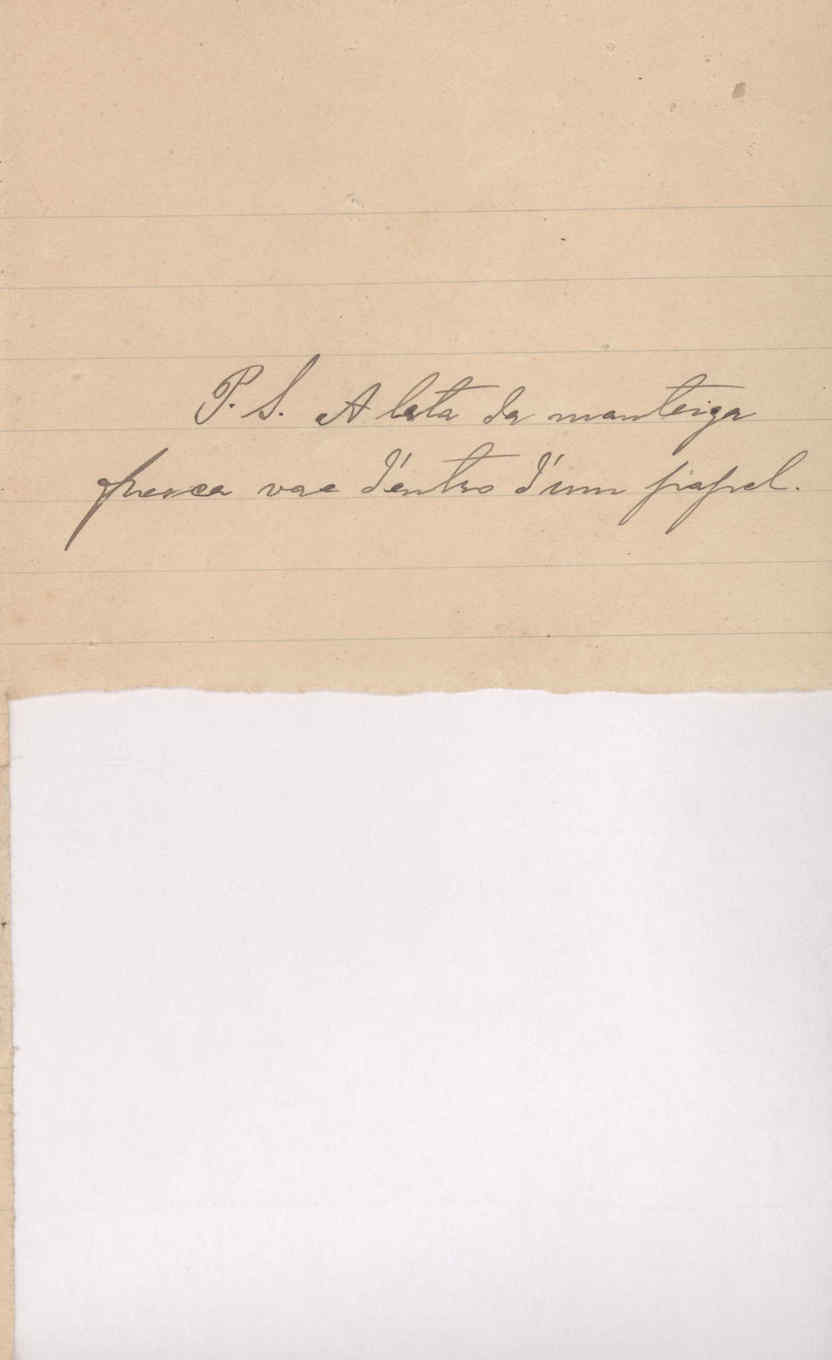 P. S. A lata da manteiga
fresca vae d'entro d'um papel.